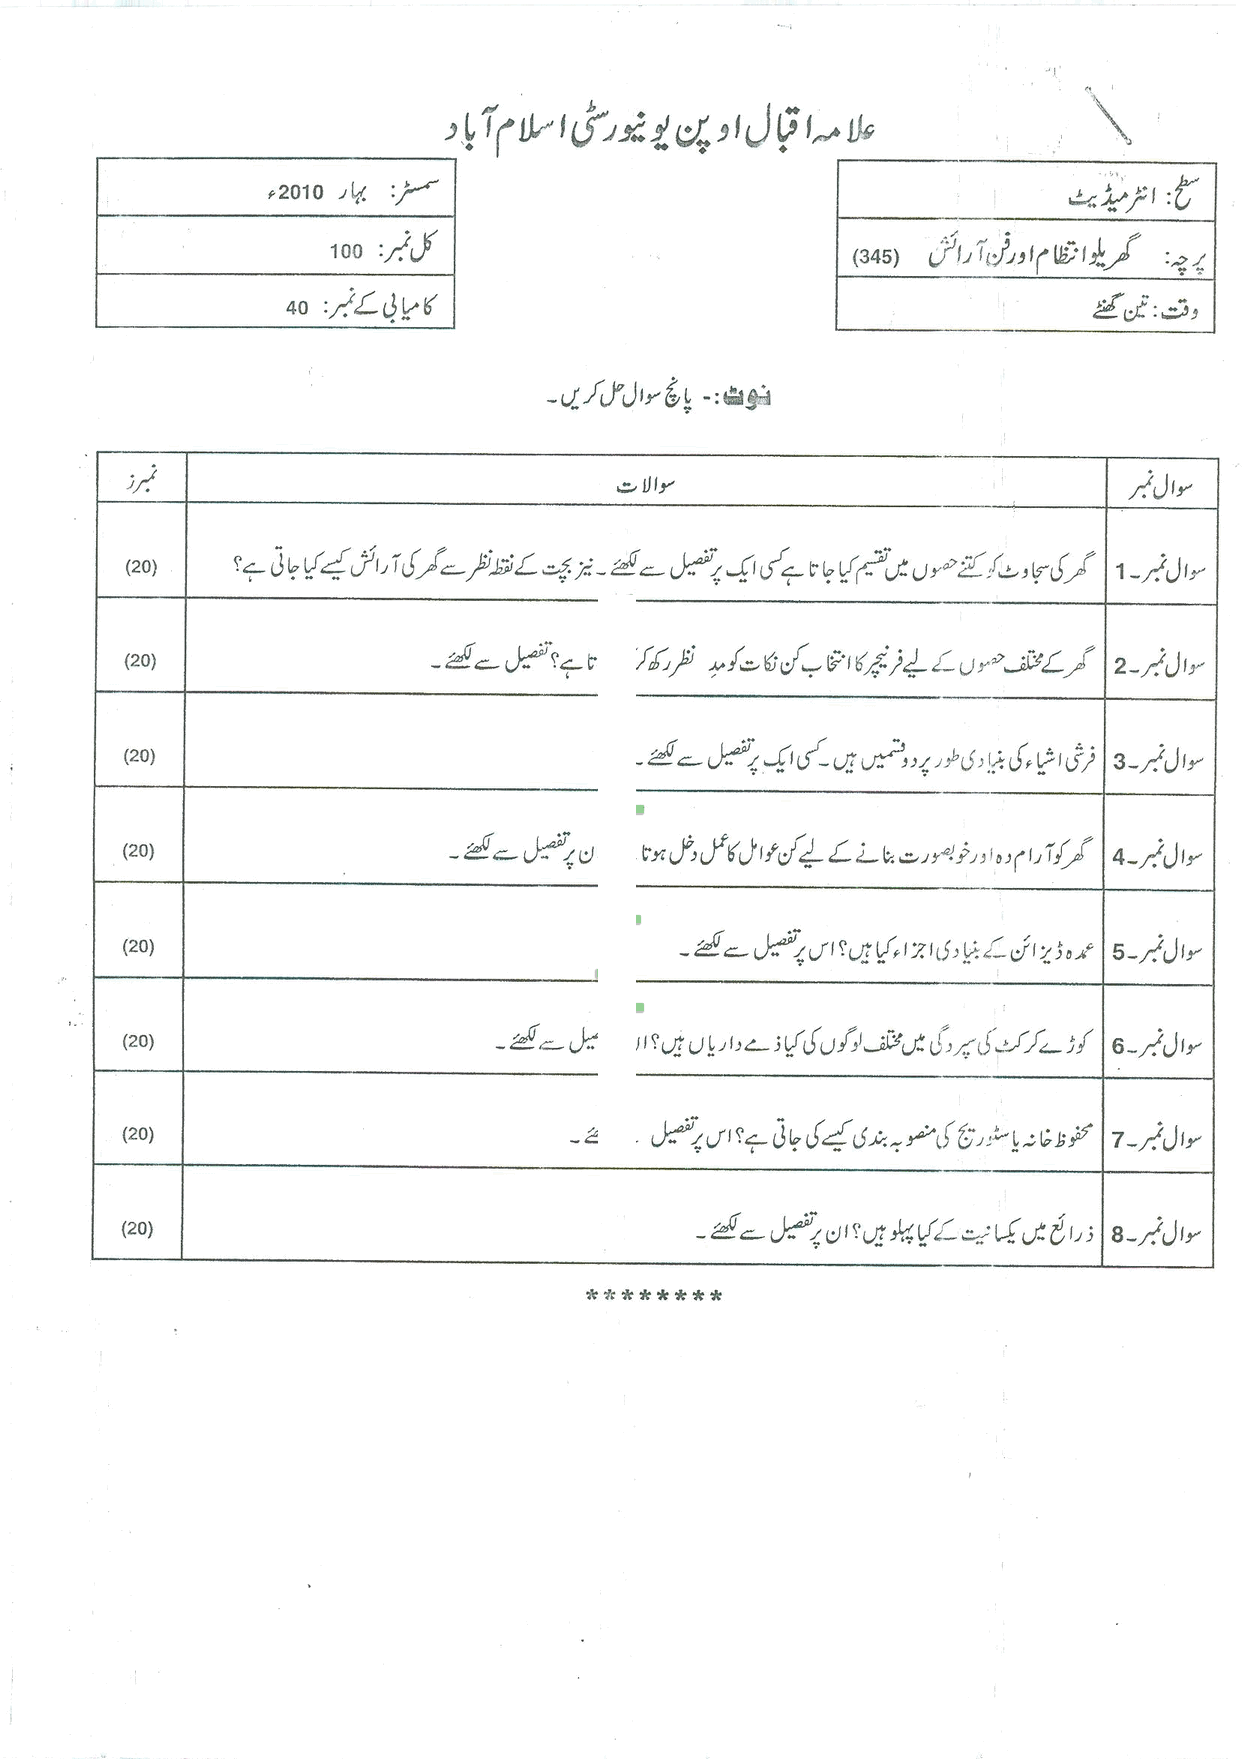 علامہ اقبال اوپن یونیورسٹی اسلام آباد
سطح: انٹرمیڈیٹ
سمسٹر: بہار 2010ء
پرچہ: گھریلو انتظام اور فن آرائش (345)
کل نمبر: 100
وقت: تین گھنٹے
کامیابی کے نمبر: 40
نوٹ:- پانچ سوال حل کریں۔
سوال نمبر سوالات نمبرز
سوال نمبر۔1 گھر کی سجاوٹ کو کتنے حصوں میں تقسیم کیا جاتا ہے کسی ایک پر تفصیل سے لکھئے۔ نیز بچت کے نقطہ نظر سے گھر کی آرائش کیسے کیا جاتی ہے؟ (20)
سوال نمبر۔2 گھر کے مختلف حصوں کے لیے فرنیچر کا انتخاب کن نکات کو مدِ نظر رکھ کر تا ہے؟ تفصیل سے لکھئے۔ (20)
سوال نمبر۔3 فرشی اشیاء کی بنیادی طور پر دو قسمیں ہیں۔ کسی ایک پر تفصیل سے لکھئے۔ (20)
سوال نمبر۔4 گھر کو آرام دہ اور خوبصورت بنانے کے لیے کن عوامل کا عمل دخل ہوتا ن پر تفصیل سے لکھئے۔ (20)
سوال نمبر۔5 عمدہ ڈیزائن کے بنیادی اجزاء کیا ہیں؟ اس پر تفصیل سے لکھئے۔ (20)
سوال نمبر۔6 کوڑے کرکٹ کی سپردگی میں مختلف لوگوں کی کیا ذمے داریاں ہیں؟ سے لکھئے۔ (20)
سوال نمبر۔7 محفوظ خانہ یا سٹوریج کی منصوبہ بندی کیسے کی جاتی ہے؟ اس پر تفصیل (20)
سوال نمبر۔8 ذرائع میں یکسانیت کے کیا پہلو ہیں؟ ان پر تفصیل سے لکھئے۔ (20)
********